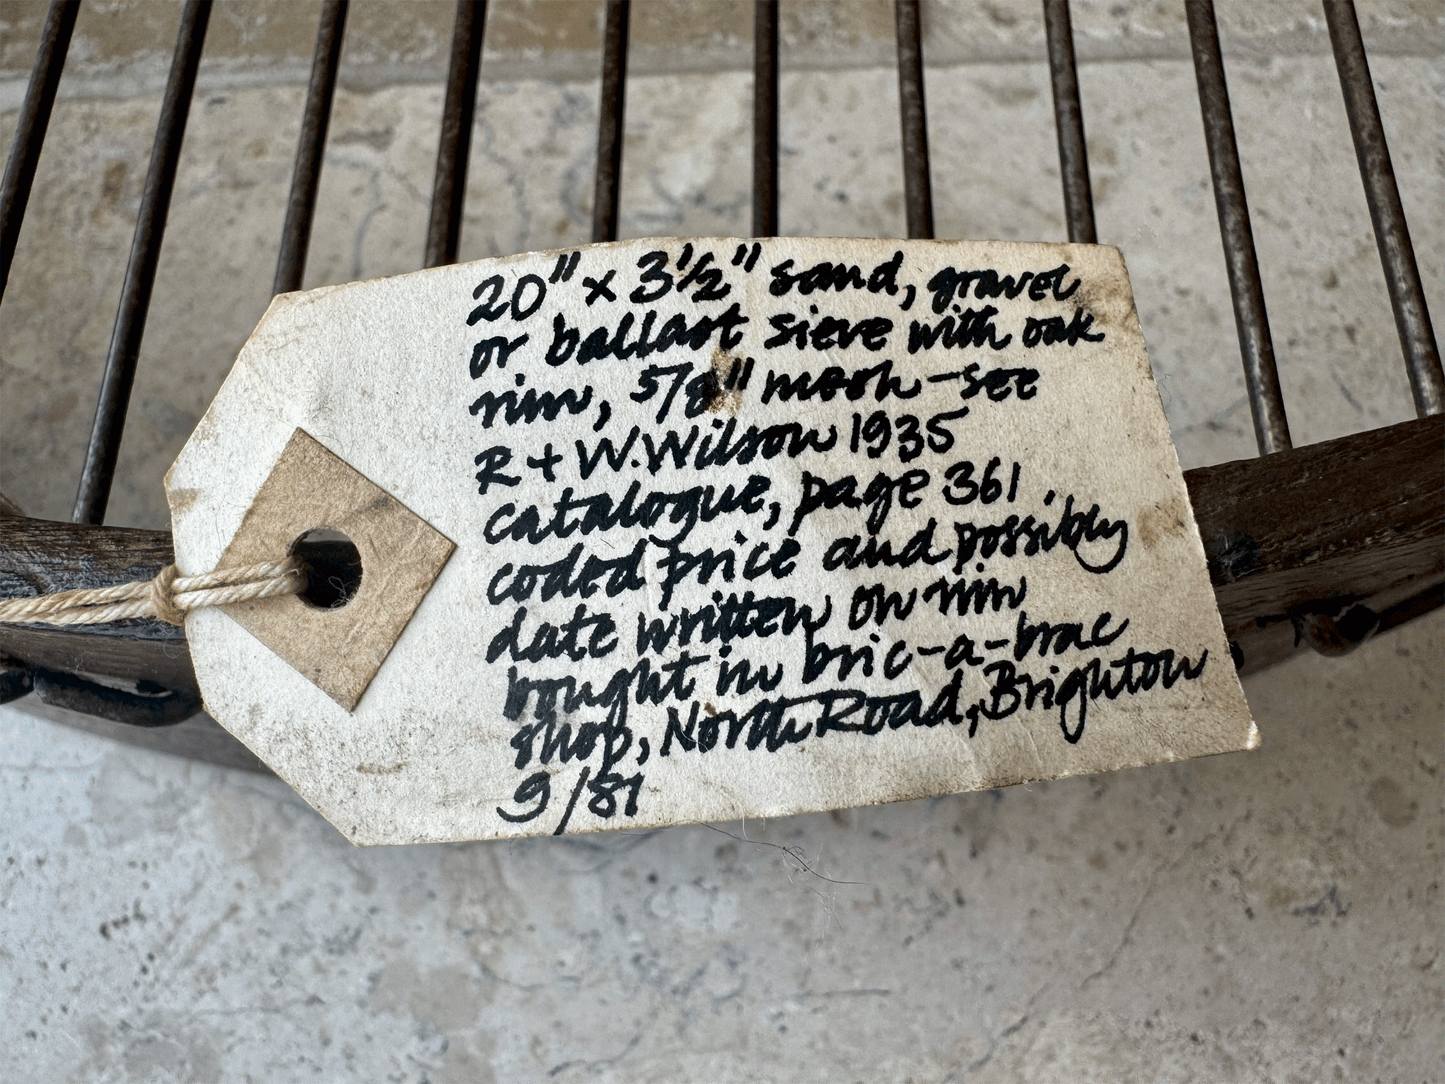 20" x 3½" sand, gravel
or ballast sieve with oak
rim, 5/8" mesh - see
R + W. Wilson 1935
catalogue, page 361,
coded price and possibly
date written on rim
bought in bric-a-brac
shop, North Road, Brighton
9/81